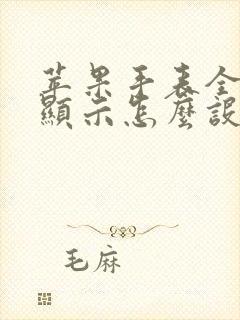 苹果手表全
顯示怎麼設
毛麻